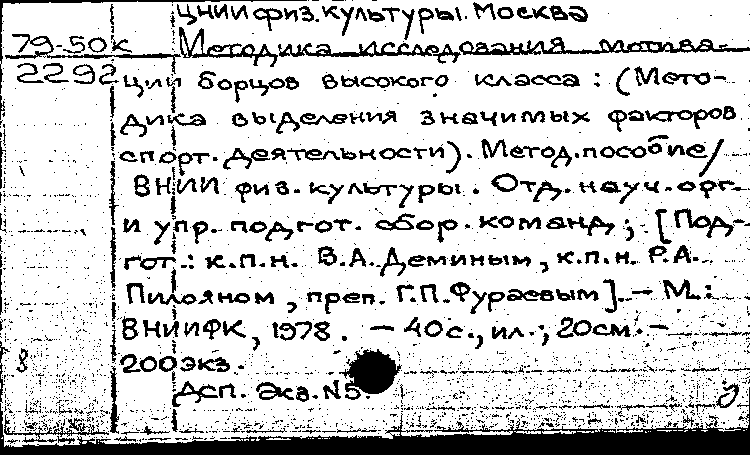 ЦНИИ физ. культуры. Москва
79-50к Методика исследования мотива-
2292 ции борцов высокого класса: (Мето-
дика выделения значимых факторов
спорт. деятельности). Метод. пособие/
ВНИИ физ. культуры. Отд. науч. орг.
и упр. подгот. сбор. команд; [Под-
гот.: к.п.н. В.А. Деминым, к.п.н. Р.А.
Пилояном, преп. Г.П. Фураевым]. — М.:
ВНИИФК, 1978. — 40 с., ил.; 20см. —
8 200 экз.
Дсп. Экз. N5.